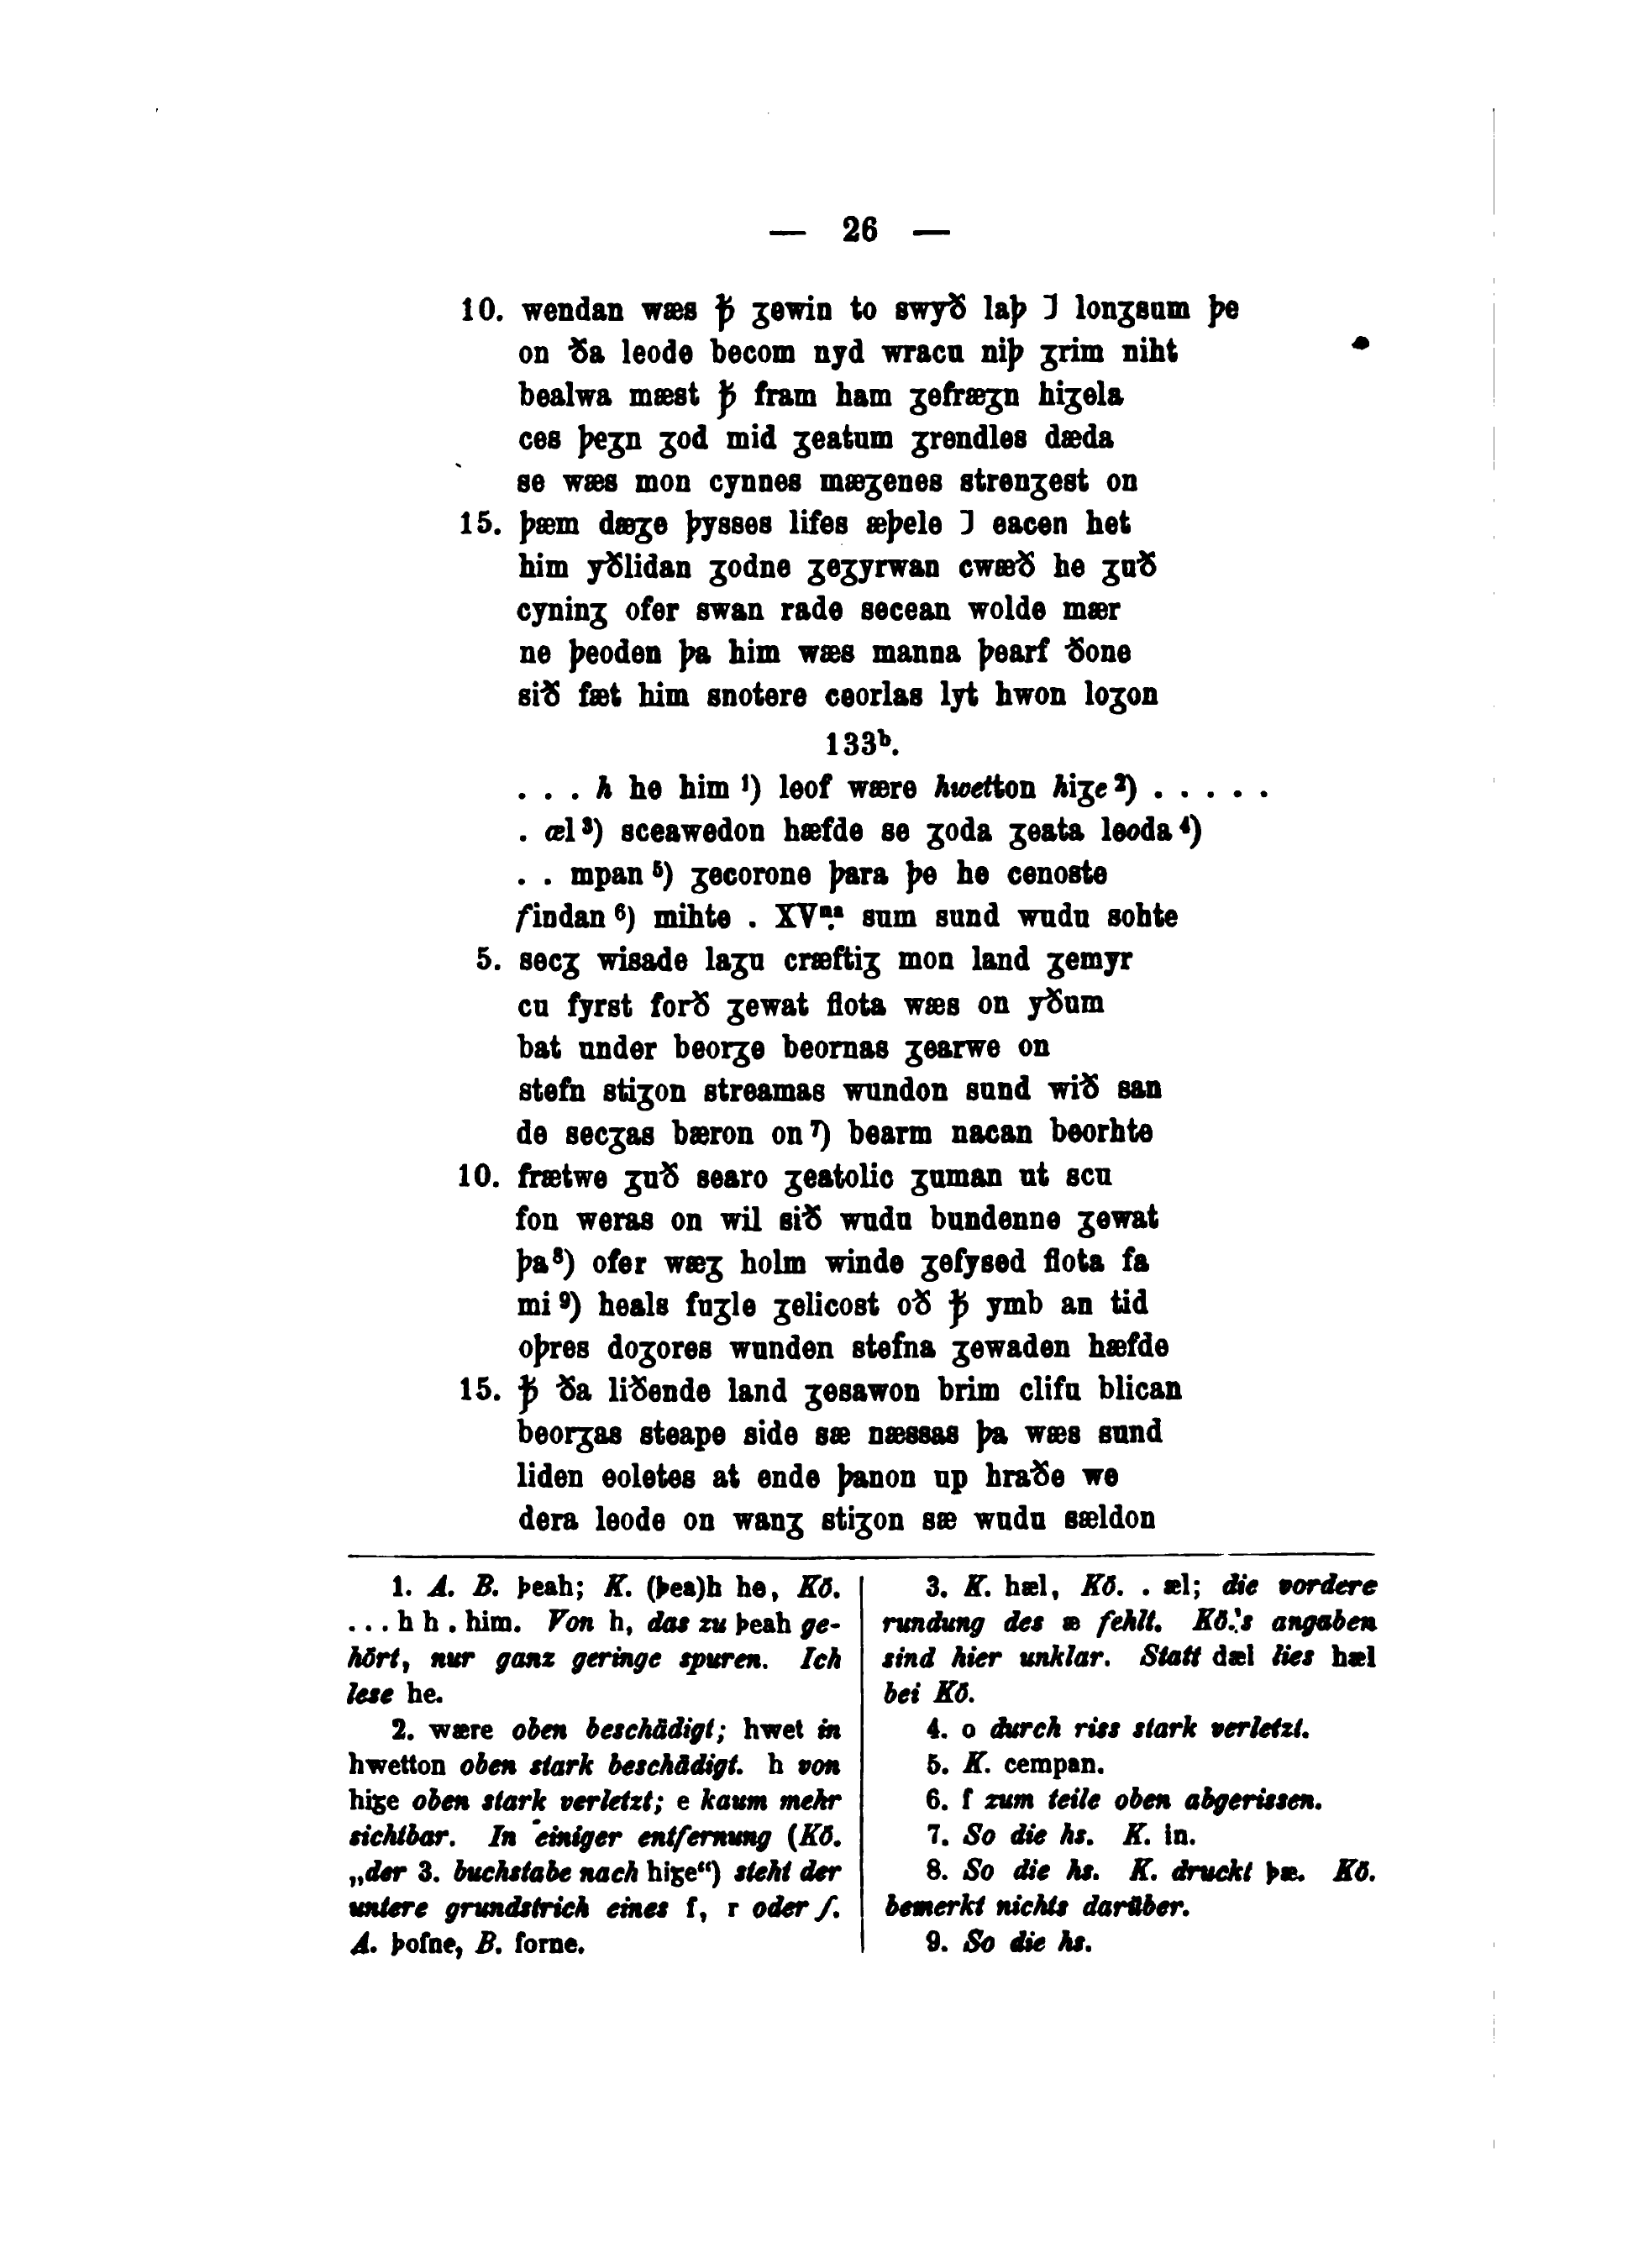 — 26 —
10. wendan wæs ꝥ ȝewin to swyð laþ ⁊ lonȝsum þe
on ða leode becom nyd wracu niþ ȝrim niht
bealwa mæst ꝥ fram ham ȝefræȝn hiȝela
ces þeȝn ȝod mid ȝeatum ȝrendles dæda
se wæs mon cynnes mæȝenes strenȝest on
15. þæm dæȝe þysses lifes æþele ⁊ eacen het
him yðlidan ȝodne ȝeȝyrwan cwæð he ȝuð
cyninȝ ofer swan rade secean wolde mær
ne þeoden þa him wæs manna þearf ðone
sið fæt him snotere ceorlas lyt hwon loȝon
133ᵇ.
. . . h he him ¹) leof wære hwetton hiȝe ²) . . . . .
. æl ³) sceawedon hæfde se ȝoda ȝeata leoda ⁴)
. . mpan ⁵) ȝecorone þara þe he cenoste
findan ⁶) mihte . XVⁿᵃ. sum sund wudu sohte
5. secȝ wisade laȝu cræftiȝ mon land ȝemyr
cu fyrst forð ȝewat flota wæs on yðum
bat under beorȝe beornas ȝearwe on
stefn stiȝon streamas wundon sund wið san
de secȝas bæron on ⁷) bearm nacan beorhte
10. frætwe ȝuð searo ȝeatolic ȝuman ut scu
fon weras on wil sið wudu bundenne ȝewat
þa ⁸) ofer wæȝ holm winde ȝefysed flota fa
mi ⁹) heals fuȝle ȝelicost oð ꝥ ymb an tid
oþres doȝores wunden stefna ȝewaden hæfde
15. ꝥ ða liðende land ȝesawon brim clifu blican
beorȝas steape side sæ næssas þa wæs sund
liden eoletes at ende þanon up hraðe we
dera leode on wanȝ stiȝon sæ wudu sældon
1. A. B. þeah; K. (þea)h he, Kö.
. . . h h . him. Von h, das zu þeah ge-
hört, nur ganz geringe spuren. Ich
lese he.
2. wære oben beschädigt; hwet in
hwetton oben stark beschädigt. h von
hiȝe oben stark verletzt; e kaum mehr
sichtbar. In einiger entfernung (Kö.
„der 3. buchstabe nach hiȝe“) steht der
untere grundstrich eines f, r oder ſ.
A. þofne, B. forne.
3. K. hæl, Kö. . æl; die vordere
rundung des æ fehlt. Kö.'s angaben
sind hier unklar. Statt dæl lies hæl
bei Kö.
4. o durch riss stark verletzt.
5. K. cempan.
6. f zum teile oben abgerissen.
7. So die hs. K. in.
8. So die hs. K. druckt þæ. Kö.
bemerkt nichts darüber.
9. So die hs.